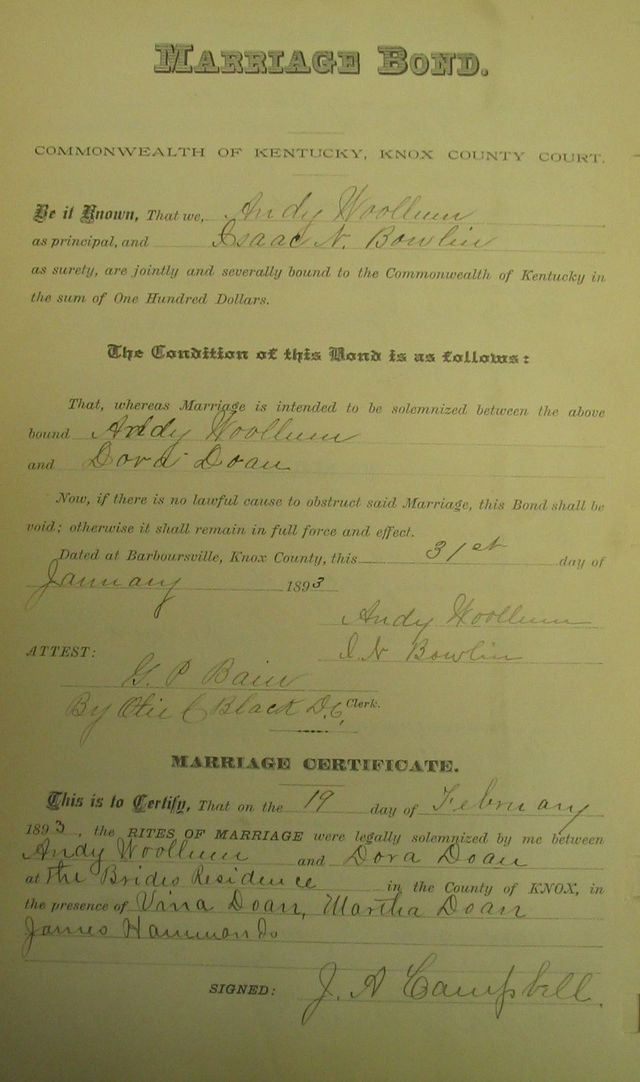 MARRIAGE BOND.
COMMONWEALTH OF KENTUCKY, KNOX COUNTY COURT.
Be it Known, That we, Andy Woollum
as principal, and Isaac N. Bowlin
as surety, are jointly and severally bound to the Commonwealth of Kentucky in
the sum of One Hundred Dollars.
The Condition of this Bond is as follows:
That, whereas Marriage is intended to be solemnized between the above
bound Andy Woollum
and Dora Doan
Now, if there is no lawful cause to obstruct said Marriage, this Bond shall be
void; otherwise it shall remain in full force and effect.
Dated at Barboursville, Knox County, this 31st day of
January 1893
Andy Woollum
ATTEST: I N Bowlin
G. P Bain
By Otie C Black D.C. Clerk.
MARRIAGE CERTIFICATE.
This is to Certify, That on the 19 day of February
1893, the RITES OF MARRIAGE were legally solemnized by me between
Andy Woollum and Dora Doan
at the Brides Residence in the County of KNOX, in
the presence of Vina Doan, Martha Doan
James Hammonds
SIGNED: J. A Campbell.